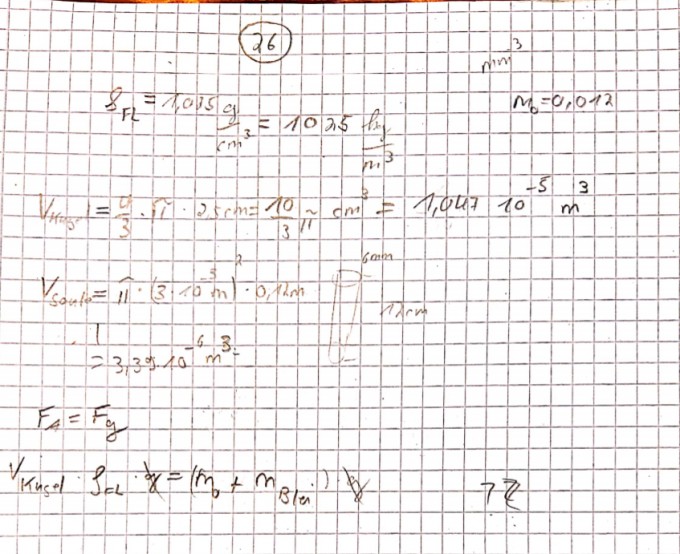 26
mm³
ρ_FL = 1,025 g/cm³ = 1025 kg/m³
m₀ = 0,012
V_Kugel = 4/3 · π · 2,5 cm = 10/3 π cm³ = 1,047 10⁻⁵ m³
V_Säule = π · (3 · 10⁻³ m)² · 0,12m
6mm
12cm
= 3,39 · 10⁻⁶ m³
F_A = F_g
V_Kugel · ρ_FL · g = (m₀ + m_Blei) g